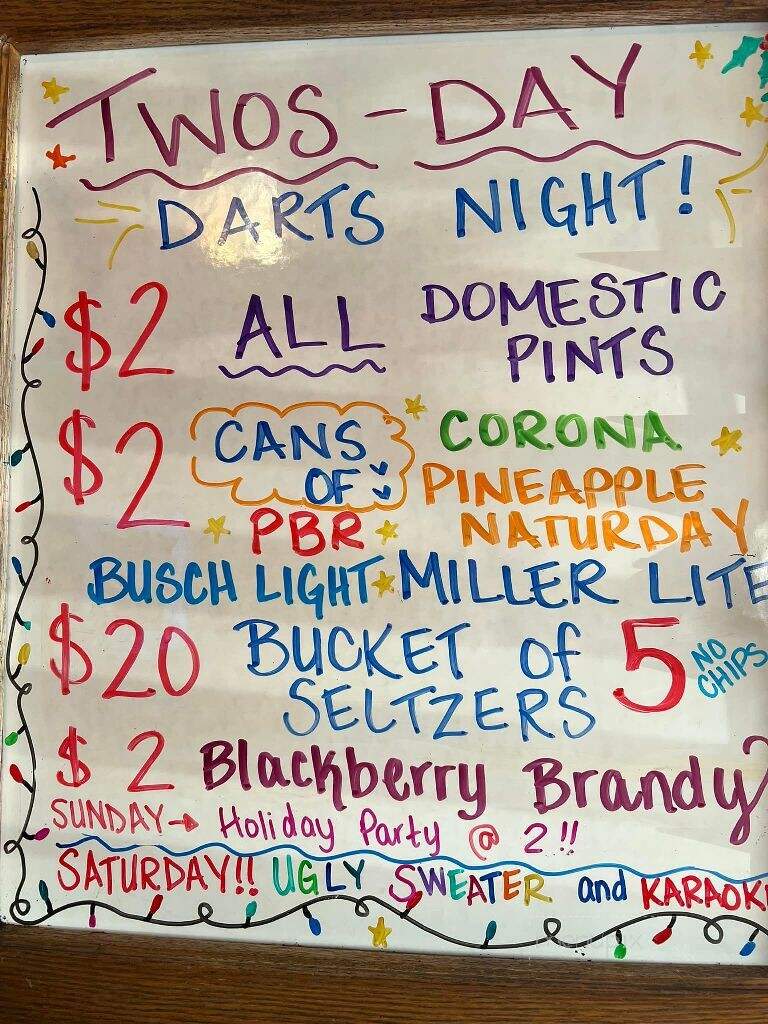 TWOS-DAY
DARTS NIGHT!
$2 ALL DOMESTIC PINTS
$2 CANS OF CORONA
PINEAPPLE NATURDAY
PBR
BUSCH LIGHT MILLER LITE
$20 BUCKET OF SELTZERS 5 NO CHIPS
$2 Blackberry Brandy
SUNDAY→ Holiday Party @ 2!!
SATURDAY!! UGLY SWEATER and KARAOK